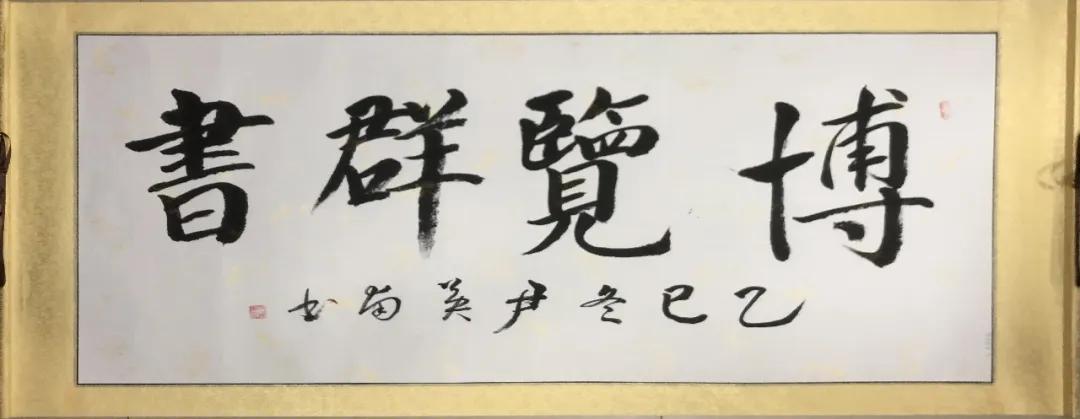 博覽群書
乙巳冬尹英南书